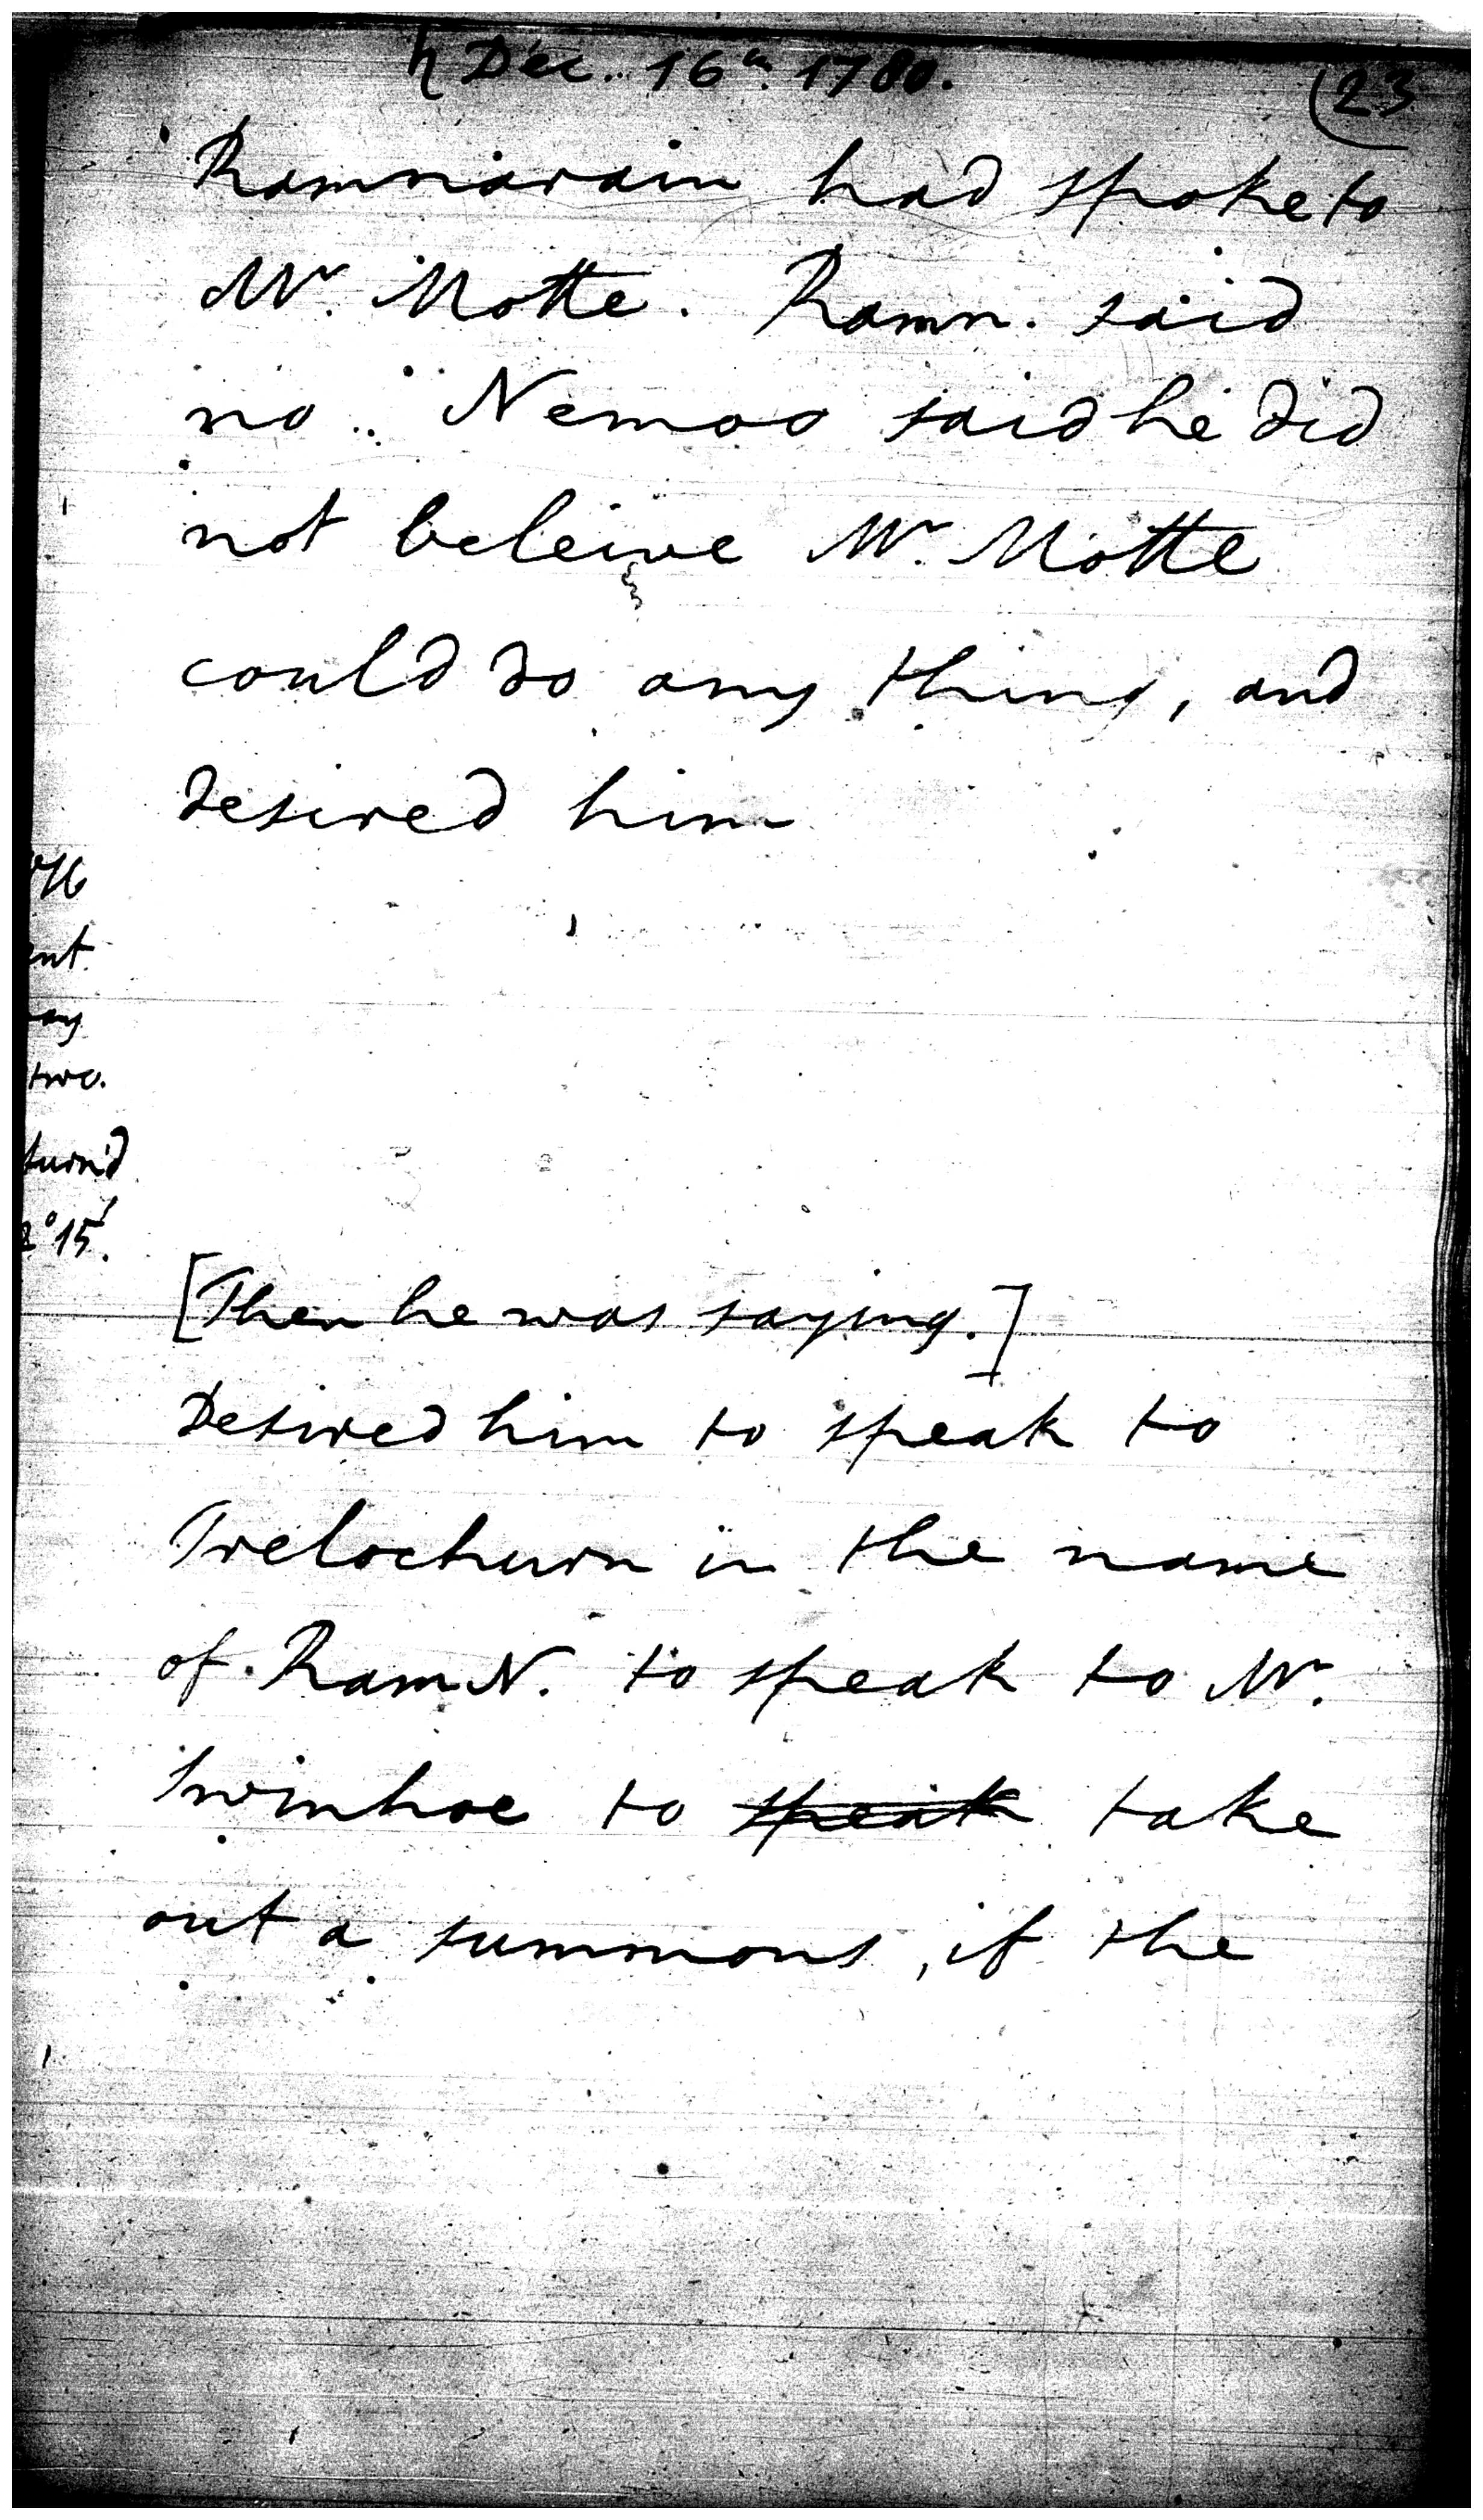 ♄ Dec.. 16th 1780.
(23
Ramnarain had spoke to
Mr. Motte. Ramn. said
no.. Nemoo said he did
not beleive Mr. Motte
could do any thing, and
desired him
ent
ay
two.
turn'd
2° 15'.
[Then he was saying.]
Desired him to speak to
Trelochurn in the name
of RamN. to speak to Mr.
Swinhoe to speak take
out a summons, if the